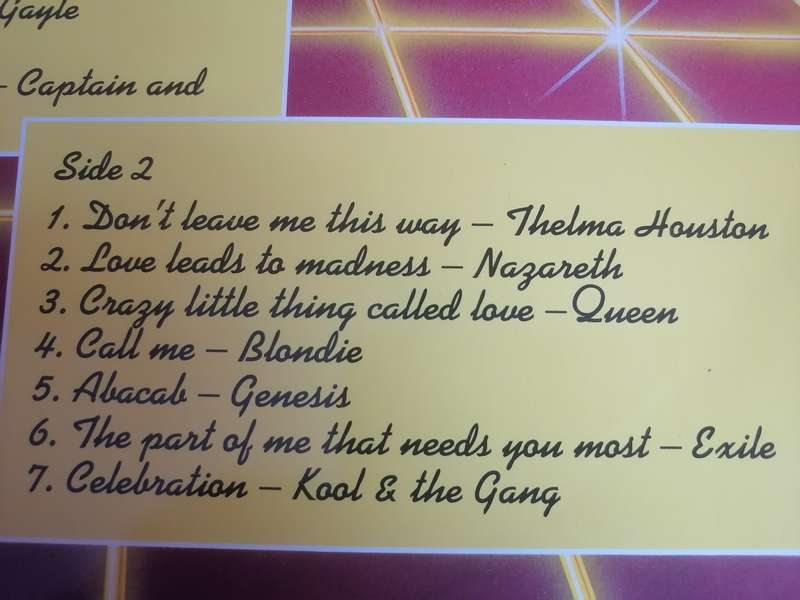 Gayle
- Captain and
Side 2
1. Don't leave me this way – Thelma Houston
2. Love leads to madness – Nazareth
3. Crazy little thing called love – Queen
4. Call me – Blondie
5. Abacab – Genesis
6. The part of me that needs you most – Exile
7. Celebration – Kool & the Gang